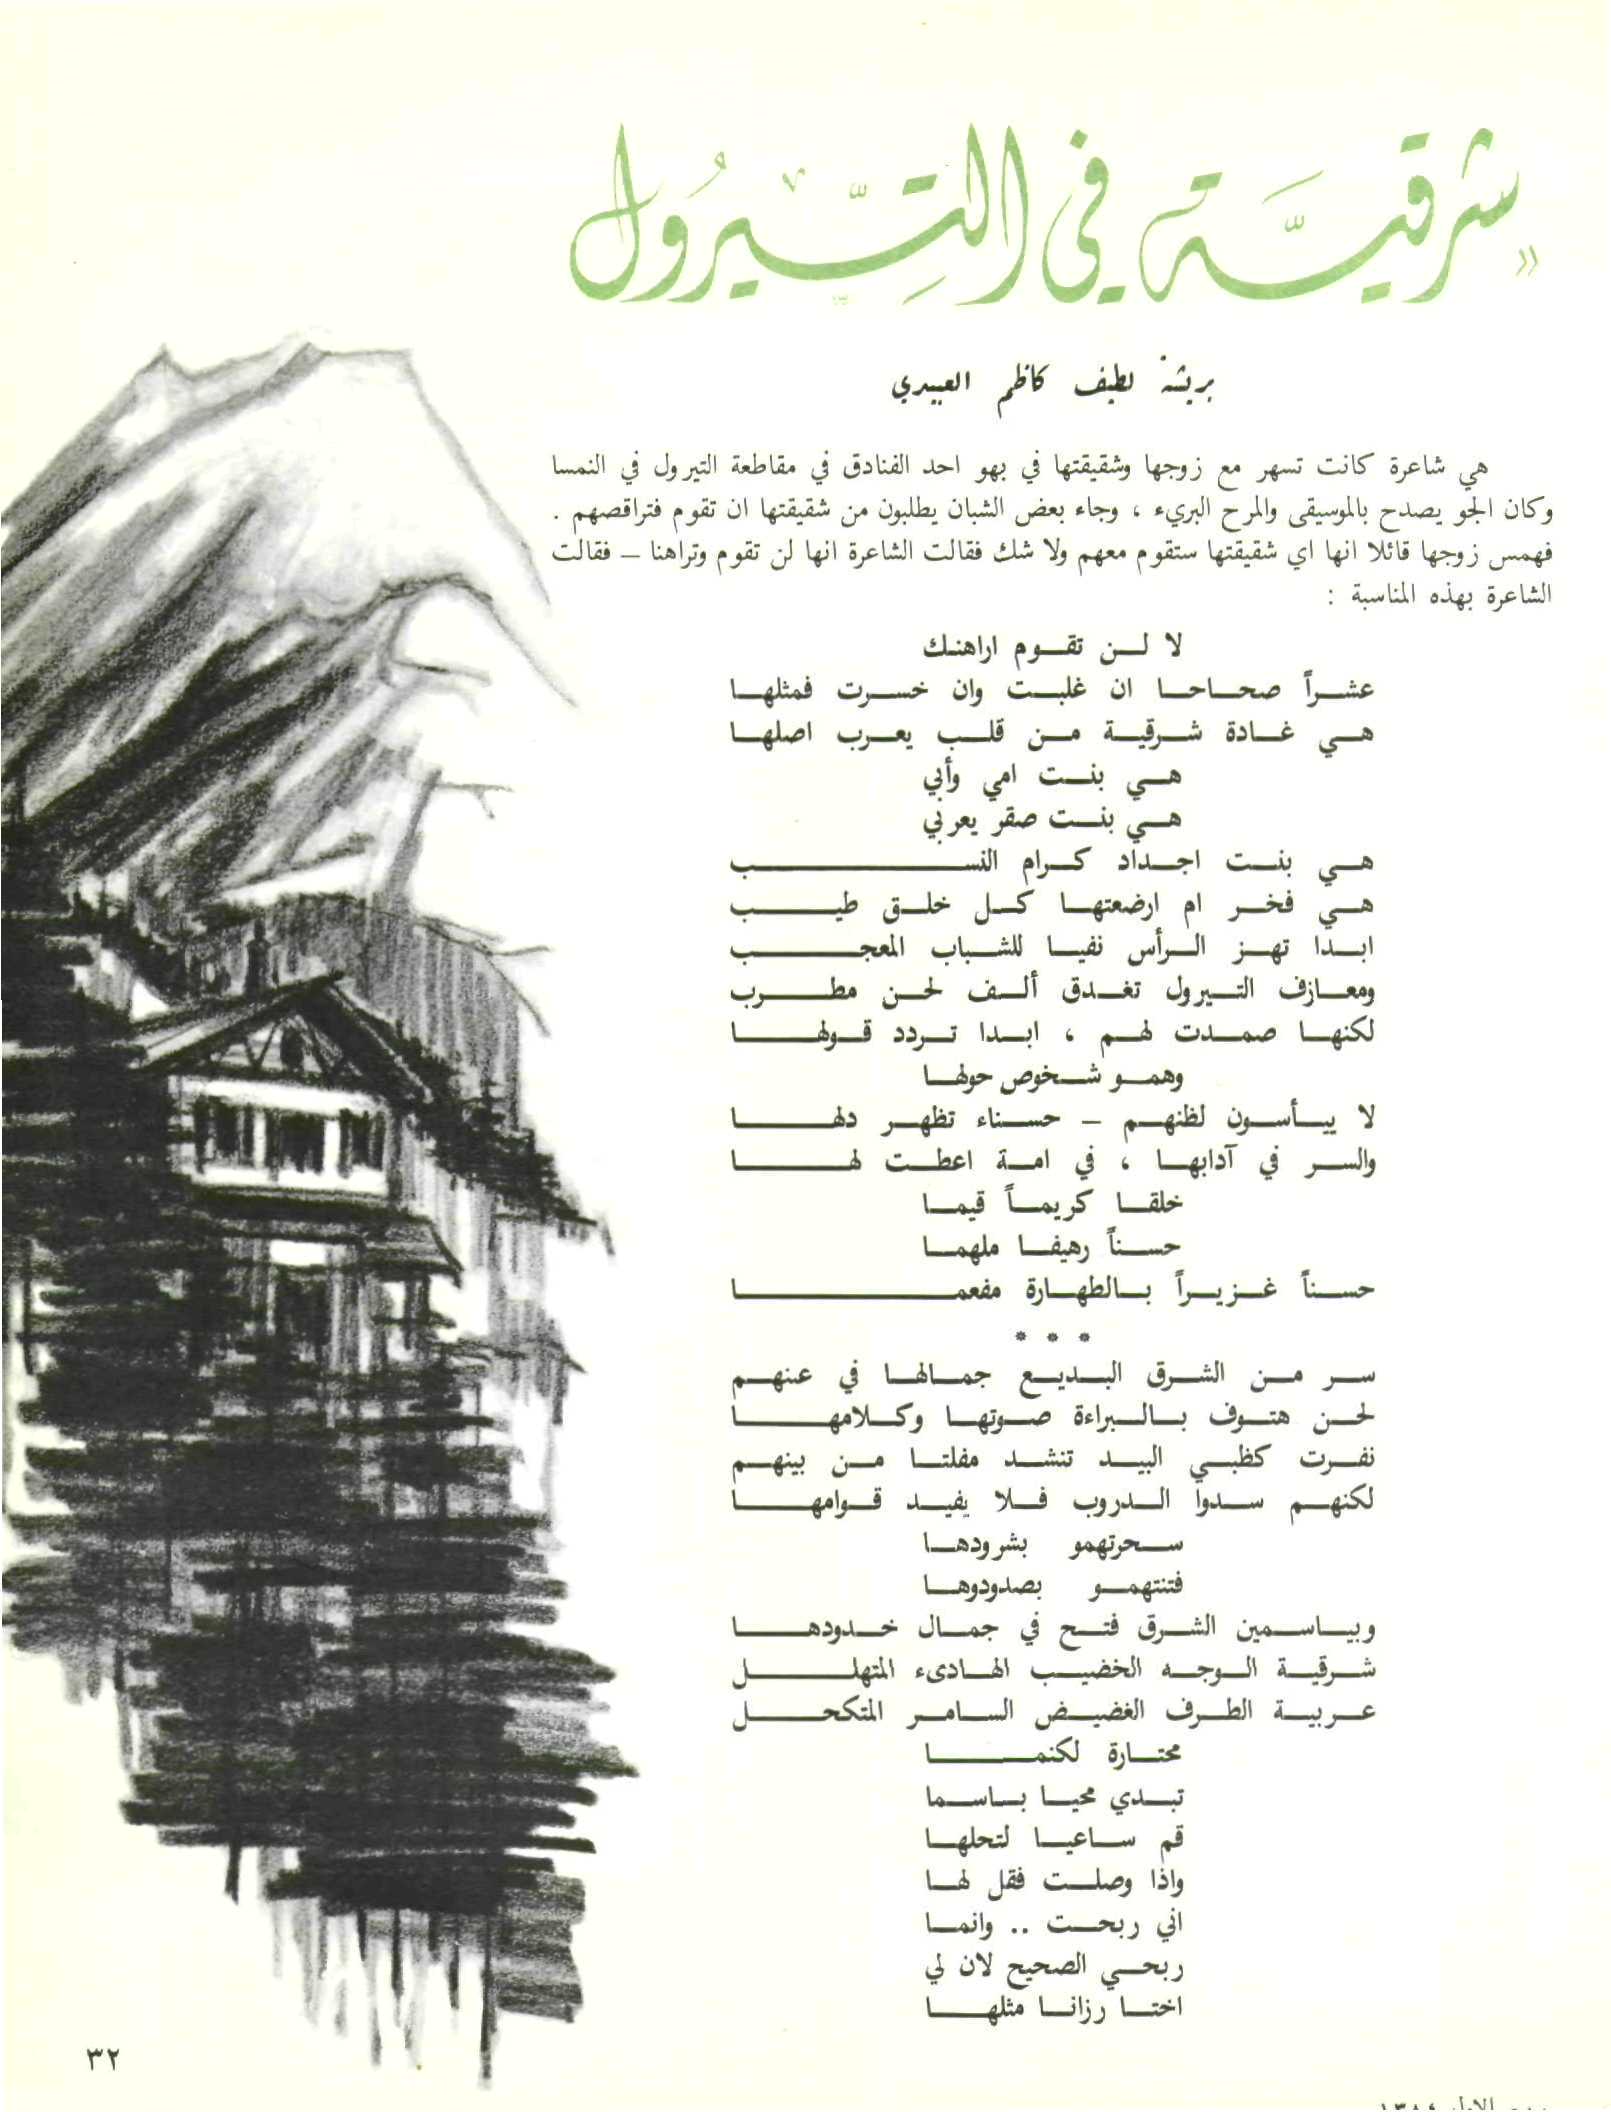 شرقيَّة في التِّيرُول
بريشة لطيف كاظم العبيدي
هي شاعرة كانت تسهر مع زوجها وشقيقتها في بهو احد الفنادق في مقاطعة التيرول في النمسا
وكان الجو يصدح بالموسيقى والمرح البريء ، وجاء بعض الشبان يطلبون من شقيقتها ان تقوم فتراقصهم .
فهمس زوجها قائلا انها اي شقيقتها ستقوم معهم ولا شك فقالت الشاعرة انها لن تقوم وتراهنا – فقالت
الشاعرة بهذه المناسبة :
لا لن تقوم اراهنك
عشراً صحاحا ان غلبت وان خسرت فمثلها
هي غادة شرقية من قلب يعرب اصلها
هي بنت امي وأبي
هي بنت صقر يعربي
هي بنت اجداد كرام النسب
هي فخر ام ارضعتها كل خلق طيب
ابدا تهز الرأس نفيا للشباب المعجب
ومعازف التيرول تغدق ألف لحن مطرب
لكنها صمدت لهم ، ابدا تردد قولها
وهمو شخوص حولها
لا ييأسون لظنهم – حسناء تظهر دلها
والسر في آدابها ، في امة اعطت لها
خلقا كريماً قيما
حسناً رهيفا ملهما
حسناً غزيراً بالطهارة مفعما
* * *
سر من الشرق البديع جمالها في عنهم
لحن هتوف بالبراءة صوتها وكلامها
نفرت كظبي البيد تنشد مفلتا من بينهم
لكنهم سدوا الدروب فلا يفيد قوامها
سحرتهمو بشرودها
فتنتهمو بصدودوها
وبياسمين الشرق فتح في جمال خدودها
شرقية الوجه الخضيب الهادىء المتهلل
عربية الطرف الغضيض السامر المتكحل
محتارة لكنما
تبدي محيا باسما
قم ساعيا لتحلها
واذا وصلت فقل لها
اني ربحت .. وانما
ربحي الصحيح لان لي
اختا رزانا مثلها
٣٢